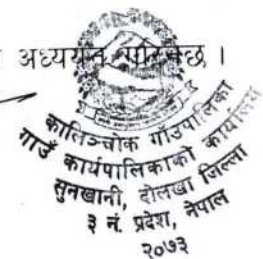 अध्ययन गरिनेछ ।
कालिञ्चोक गाउँपालिका
गाउँ कार्यपालिकाको कार्यालय
सुनखानी, दोलखा जिल्ला
३ नं. प्रदेश, नेपाल
२०७३